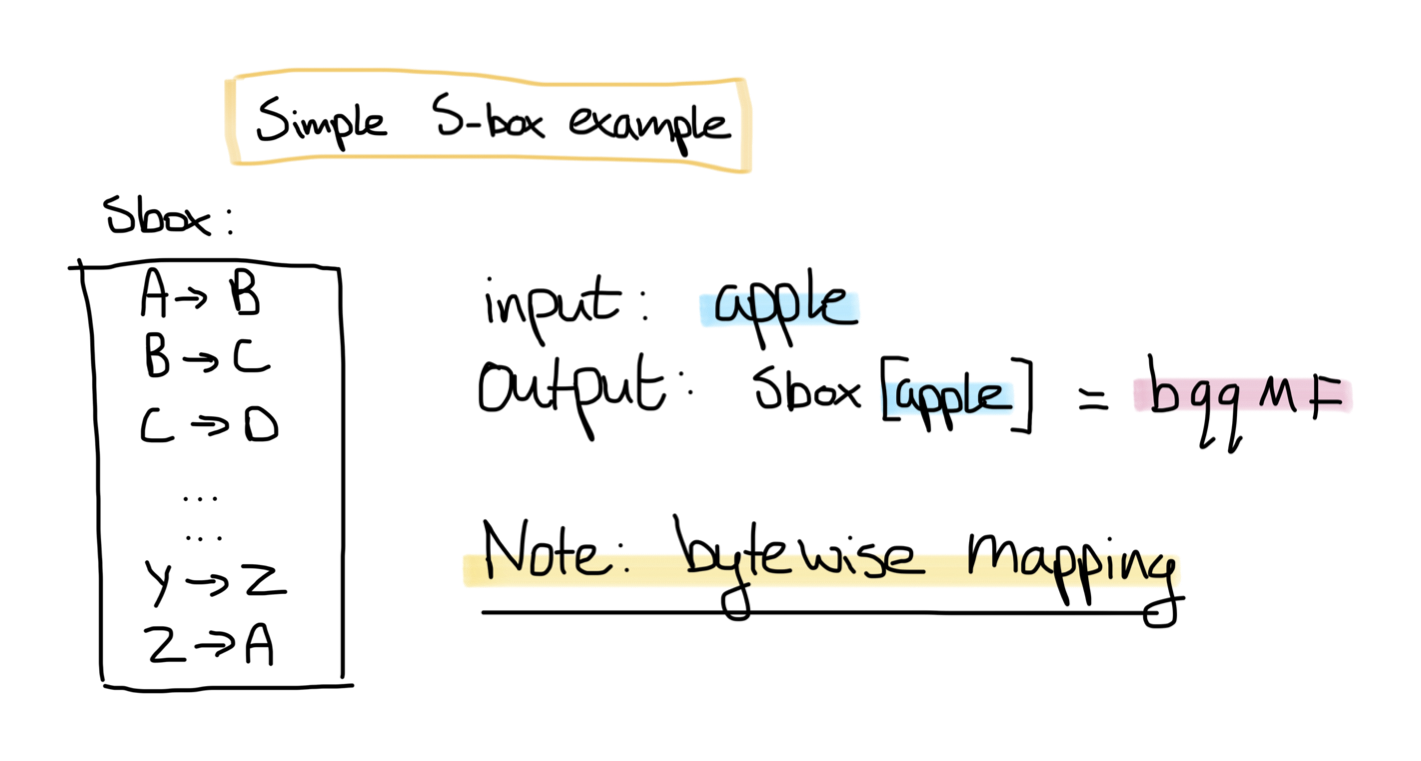 Simple S-box example
Sbox:
A → B
B → C
C → D
...
...
Y → Z
Z → A
input: apple
Output: Sbox [apple] = bqqMF
Note: bytewise mapping